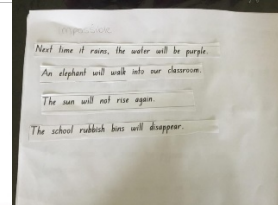 Impossible
Next time it rains, the water will be purple.
An elephant will walk into our classroom.
The sun will not rise again.
The school rubbish bins will disappear.